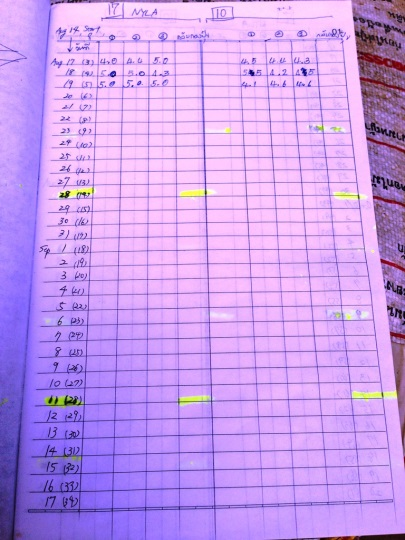 17 NYLA 10
Aug 14,
วันที่ ① ② ③ ① ② ③
Aug 17 (3) 4.0 4.4 5.0 4.5 4.4 4.3
18 (4) 5.0 5.0 4.3 5 4.2
19 (5) 5.0 5.0 5.0 4.1 4.6 4.6
20 (6)
21 (7)
22 (8)
23 (9)
24 (10)
25 (11)
26 (12)
27 (13)
28 (14)
29 (15)
30 (16)
31 (17)
Sep 1 (18)
2 (19)
3 (20)
4 (21)
5 (22)
6 (23)
7 (24)
8 (25)
9 (26)
10 (27)
11 (28)
12 (29)
13 (30)
14 (31)
15 (32)
16 (33)
17 (34)